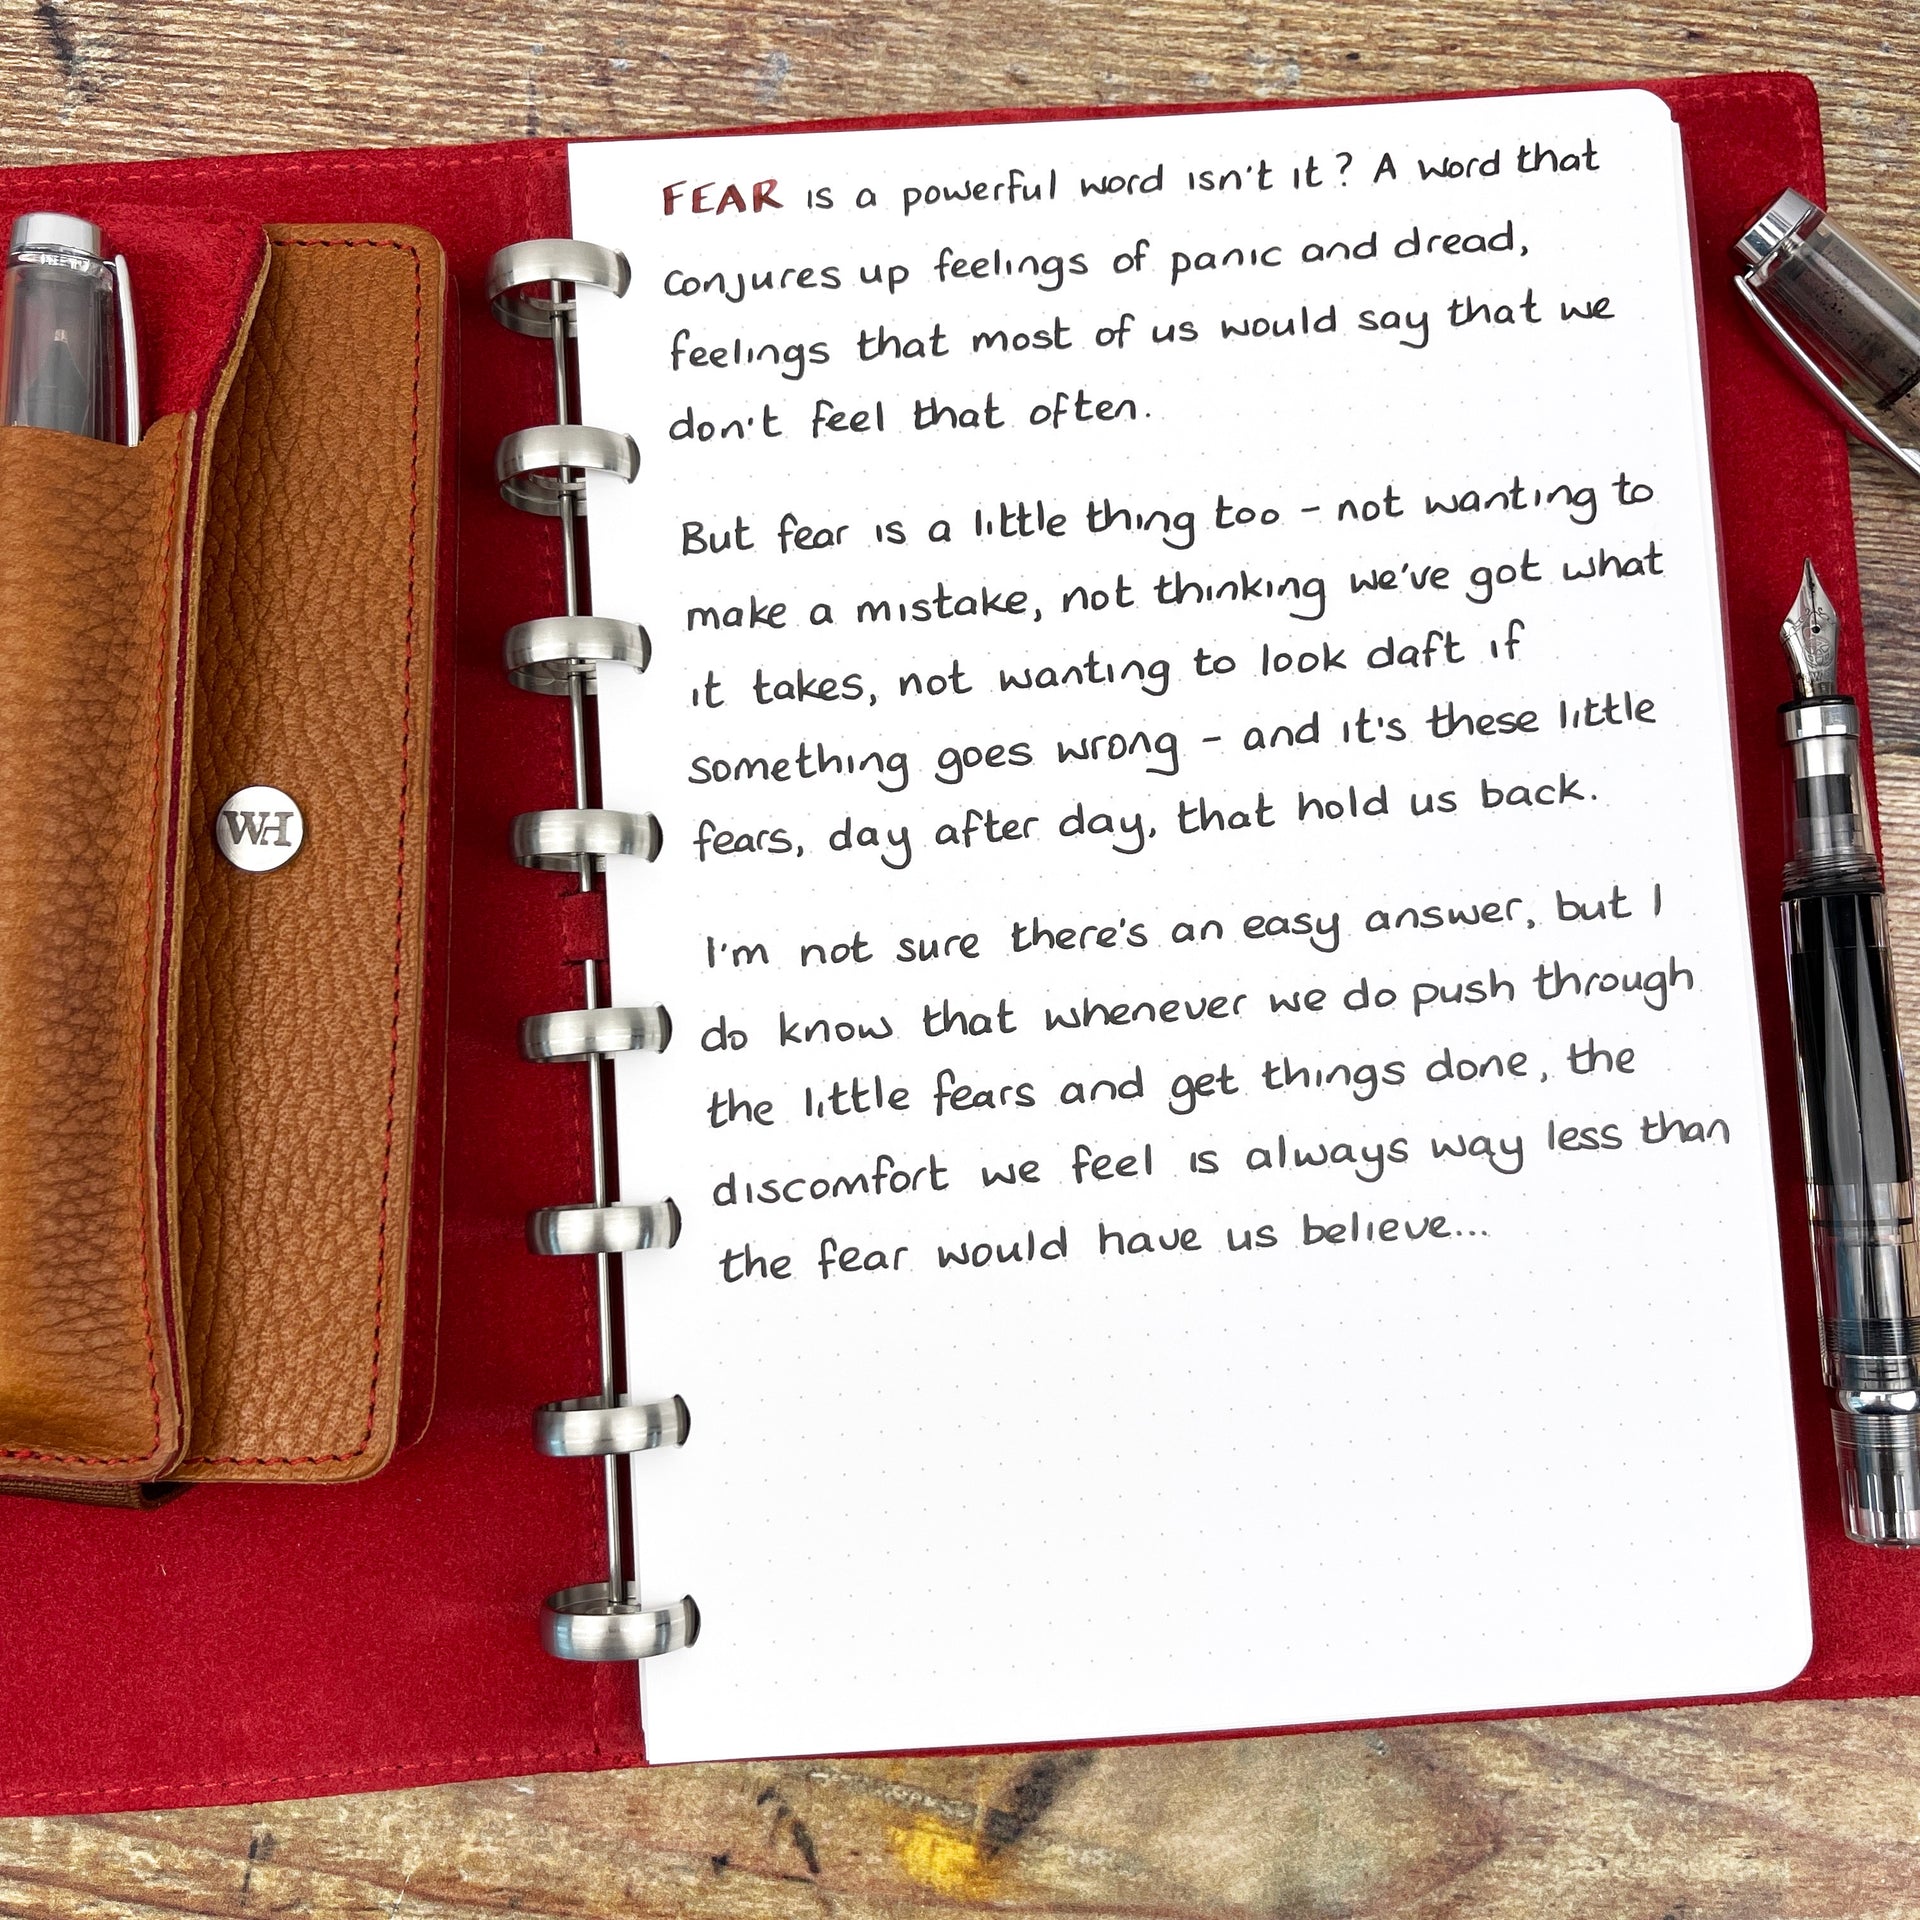 FEAR is a powerful word isn't it? A word that
conjures up feelings of panic and dread,
feelings that most of us would say that we
don't feel that often.
But fear is a little thing too - not wanting to
make a mistake, not thinking we've got what
it takes, not wanting to look daft if
something goes wrong - and it's these little
fears, day after day, that hold us back.
I'm not sure there's an easy answer, but I
do know that whenever we do push through
the little fears and get things done, the
discomfort we feel is always way less than
the fear would have us believe...
WH